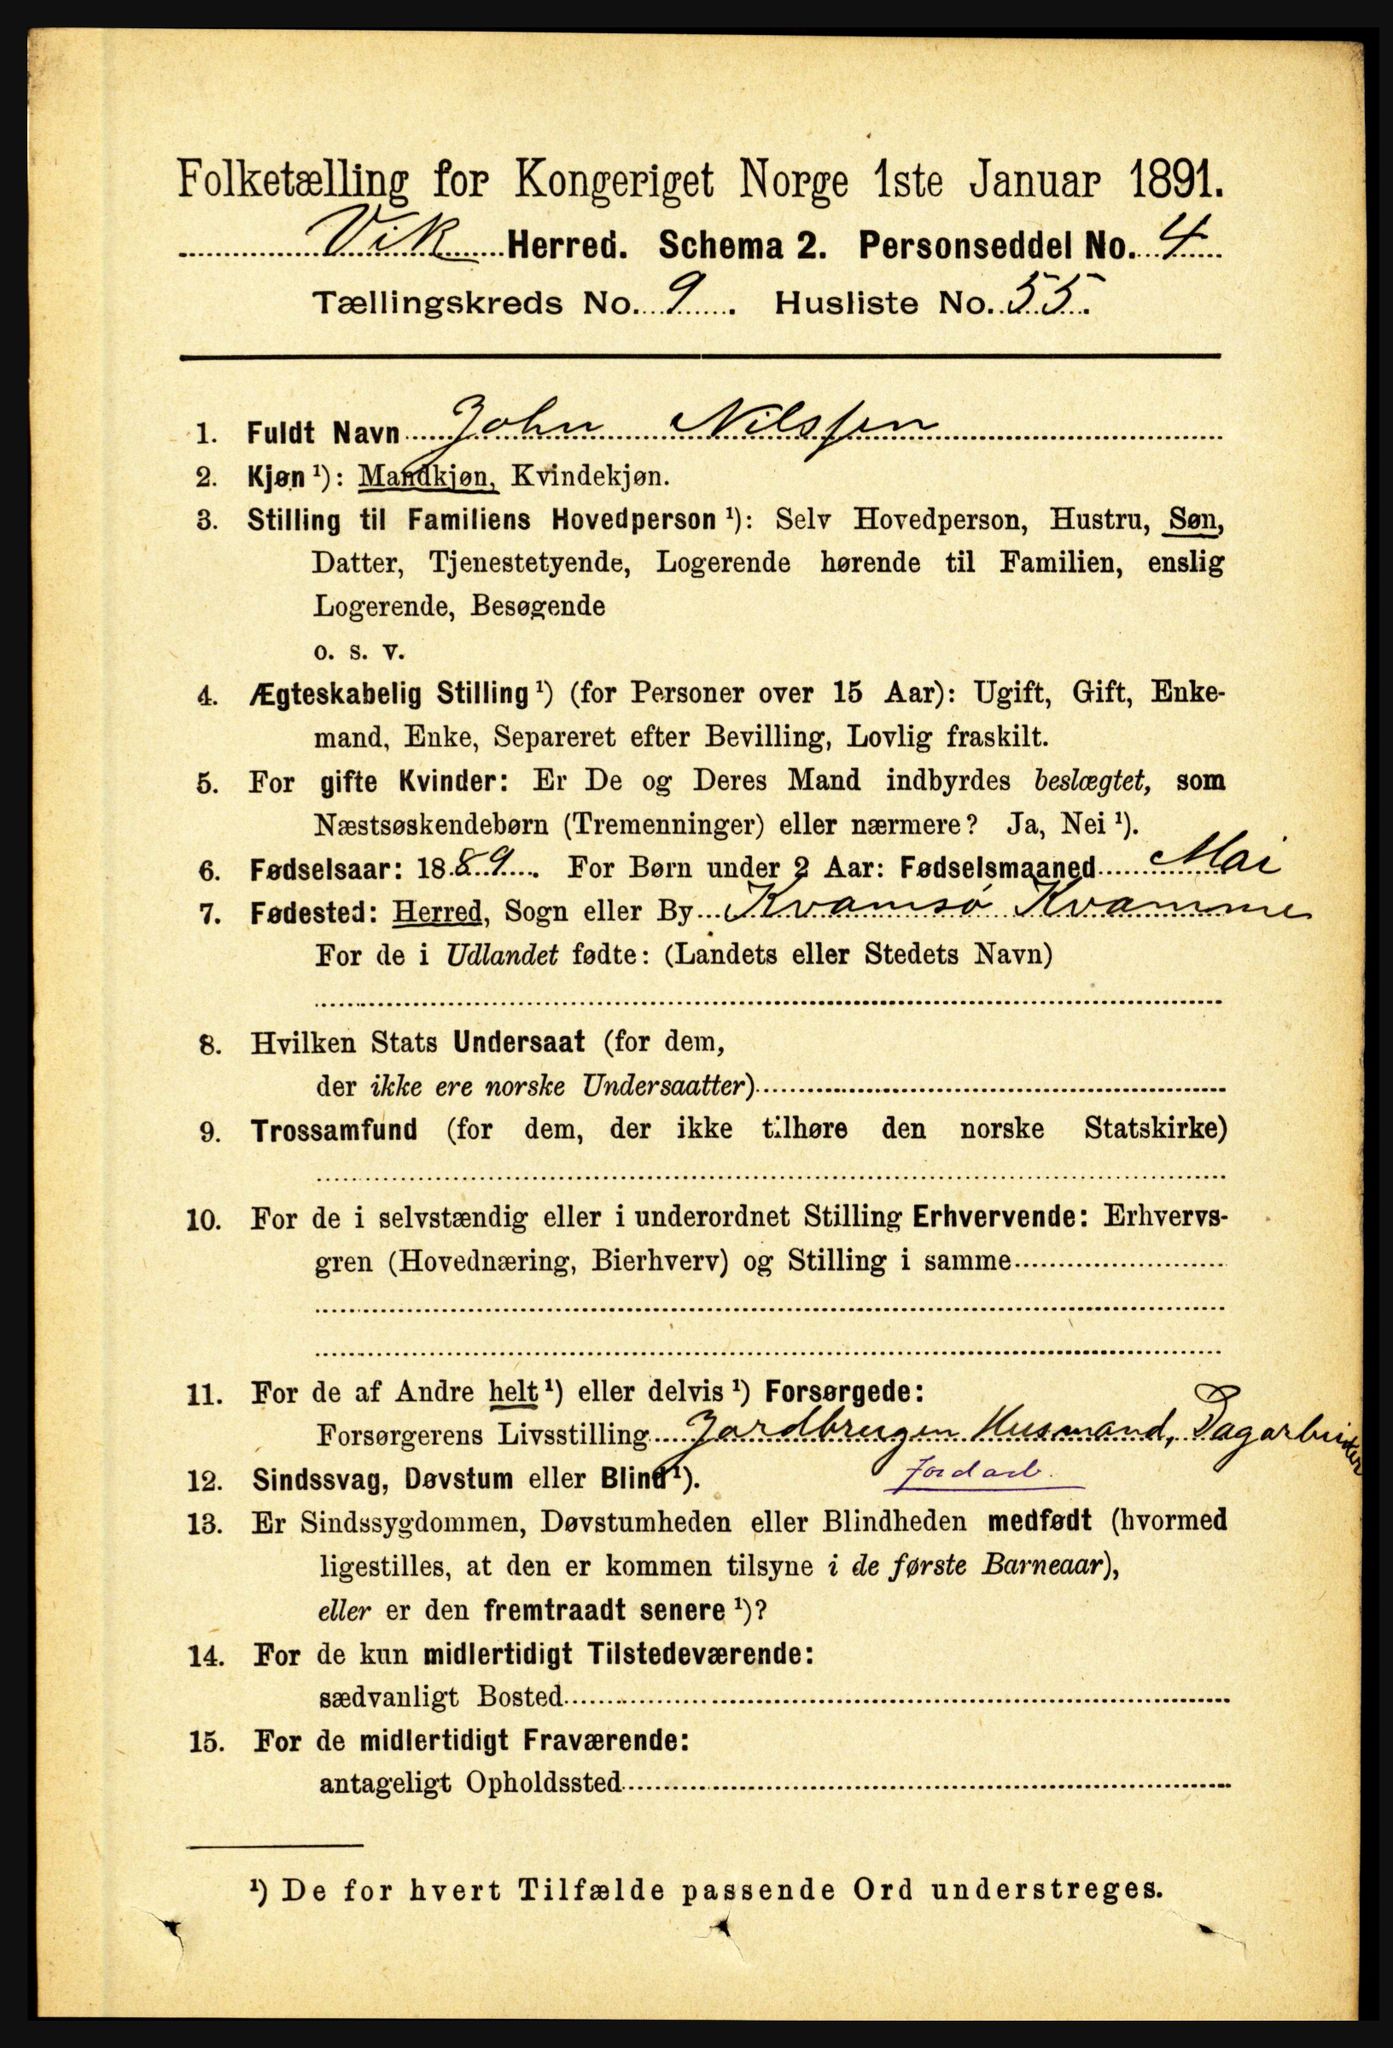 Folketælling for Kongeriget Norge 1ste Januar 1891.
Vik Herred. Schema 2. Personseddel No. 4
Tællingskreds No. 9. Husliste No. 55.
1. Fuldt Navn John Nilssen
2. Kjøn ¹): Mandkjøn, Kvindekjøn.
3. Stilling til Familiens Hovedperson ¹): Selv Hovedperson, Hustru, Søn,
Datter, Tjenestetyende, Logerende hørende til Familien, enslig
Logerende, Besøgende
o. s. v.
4. Ægteskabelig Stilling ¹) (for Personer over 15 Aar): Ugift, Gift, Enke-
mand, Enke, Separeret efter Bevilling, Lovlig fraskilt.
5. For gifte Kvinder: Er De og Deres Mand indbyrdes beslægtet, som
Næstsøskendebørn (Tremenninger) eller nærmere? Ja, Nei ¹).
6. Fødselsaar: 1889. For Børn under 2 Aar: Fødselsmaaned Mai
7. Fødested: Herred, Sogn eller By Kvamsø Kvamme
For de i Udlandet fødte: (Landets eller Stedets Navn)
8. Hvilken Stats Undersaat (for dem,
der ikke ere norske Undersaatter)
9. Trossamfund (for dem, der ikke tilhøre den norske Statskirke)
10. For de i selvstændig eller i underordnet Stilling Erhvervende: Erhvervs-
gren (Hovednæring, Bierhverv) og Stilling i samme
11. For de af Andre helt ¹) eller delvis ¹) Forsørgede:
Forsørgerens Livsstilling Jordbrugen Husmand, Dagarbeider
Jordarb.
12. Sindssvag, Døvstum eller Blind ¹).
13. Er Sindssygdommen, Døvstumheden eller Blindheden medfødt (hvormed
ligestilles, at den er kommen tilsyne i de første Barneaar),
eller er den fremtraadt senere ¹)?
14. For de kun midlertidigt Tilstedeværende:
sædvanligt Bosted
15. For de midlertidigt Fraværende:
antageligt Opholdssted
¹) De for hvert Tilfælde passende Ord understreges.